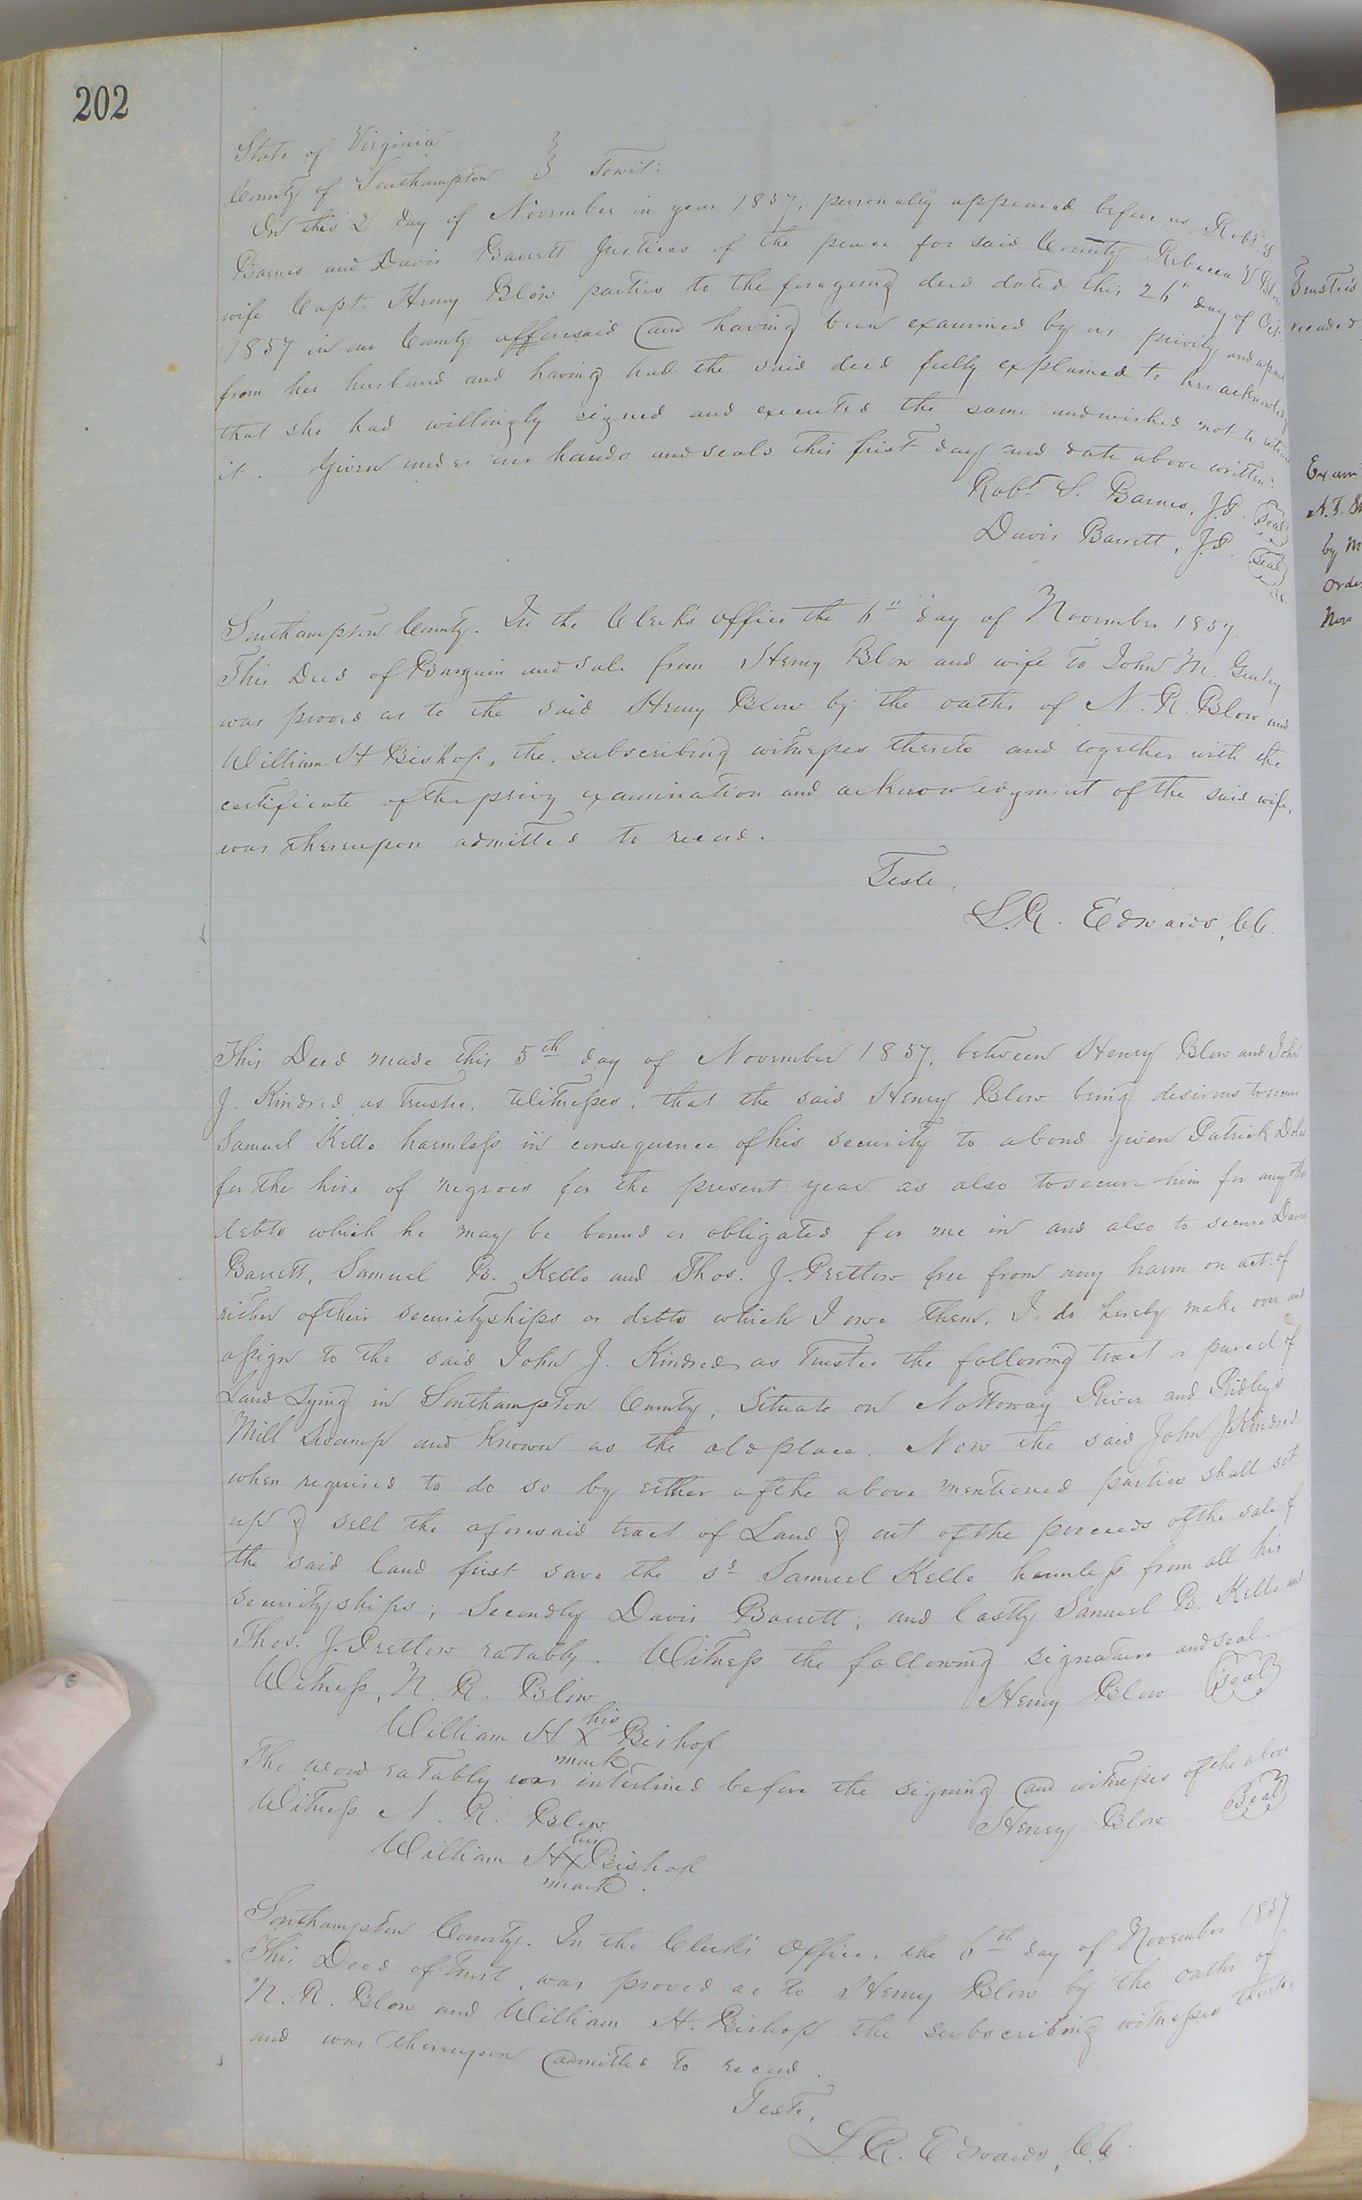 202
State of Virginia }
County of Southampton } Towit:
On this 2 day of November in year 1857, personally appeared before us, Robt S
Barnes and Davis Barrett Justices of the peace for said County Rebecca V Blow
wife Capt. Henry Blow parties to the foregoing deed dated this 26" day of Oct.
1857 in our County afforesaid and having been examined by us privily and apart
from her husband and having had the said deed fully explained to her acknowledg
that she had willingly signed and executed the same and wished not to retract
it. Given under our hands and seals this first day and date above written:
Robt S. Barnes, J.P. Seal
Davis Barrett, J.P. Seal
Southampton County. In the Clerk's office the 6th day of November 1857.
This Deed of Bargain and Sale from Henry Blow and wife to John M. Gurley
was proved as to the said Henry Blow by the oaths of N. R. Blow and
William H Bishop, the subscribing witnesses thereto and together with the
certificate of the privy examination and acknowledgment of the said wife,
was thereupon admitted to record.
Teste,
L.R. Edwards, CC.
This Deed made this 5th day of November 1857, between Henry Blow and John
J. Kindred as Trustee, Witnesses, that the said Henry Blow being desirous to secure
Samuel Kello harmless in consequence of his security to a bond given Patrick
for the hire of negroes for the present year as also to secure him for any other
debts which he may be bound or obligated for me in and also to secure Davis
Barrett, Samuel B. Kello and Thos. J. Pretlow free from any harm on act. of
either of their securityships or debts which I owe them. I do hereby make over and
assign to the said John J. Kindred as Trustee the following tract or parcel of
Land Lying in Southampton County, Situate on Nottoway River and Ridleys
Mill Swamp and known as the old place. Now the said John J Kindred
when required to do so by either of the above mentioned parties shall set
up & sell the aforesaid tract of Land & out of the proceeds of the sale of
the said land first save the sd Samuel Kello harmless from all his
securityships; Secondly Davis Barrett; and lastly Samuel B. Kello and
Thos. J. Pretlow ratably. Witness the following signature and seal.
Witness, N. R. Blow Henry Blow Seal
William H his x mark Bishop
The word ratably was interlined before the signing and witnesses of the above
Witness N. R. Blow Henry Blow Seal
William H his x mark Bishop
Southampton County. In the Clerk's Office, the 6th day of November 1857
This Deed of Trust, was proved as to Henry Blow by the oaths of
N. R. Blow and William H. Bishop the subscribing witnesses thereto,
and was thereupon admitted to record.
Teste,
L.R. Edwards, CC.
Trustees
Exam
by M
order
Nov